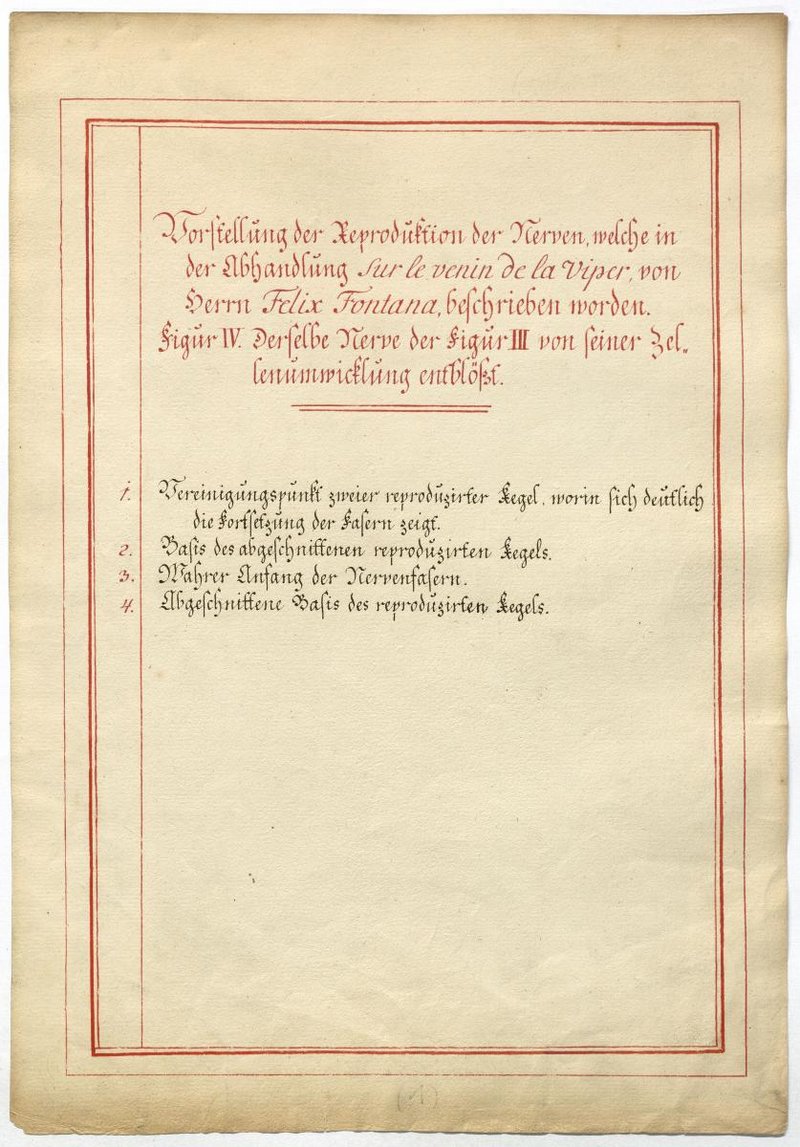 Vorstellung der Reproduktion der Nerven, welche in
der Abhandlung Sur le venin de la Viper, von
Herrn Felix Fontana, beschrieben worden.
Figur IV. Derselbe Nerve der Figur III von seiner Zel„
lenumwicklung entblößt.
1. Vereinigungspunkt zweier reproduzirter Kegel, worin sich deutlich
die Fortsetzung der Fasern zeigt.
2. Basis des abgeschnittenen reproduzirten Kegels.
3. Wahrer Anfang der Nervenfasern.
4. Abgeschnittene Basis des reproduzirten Kegels.